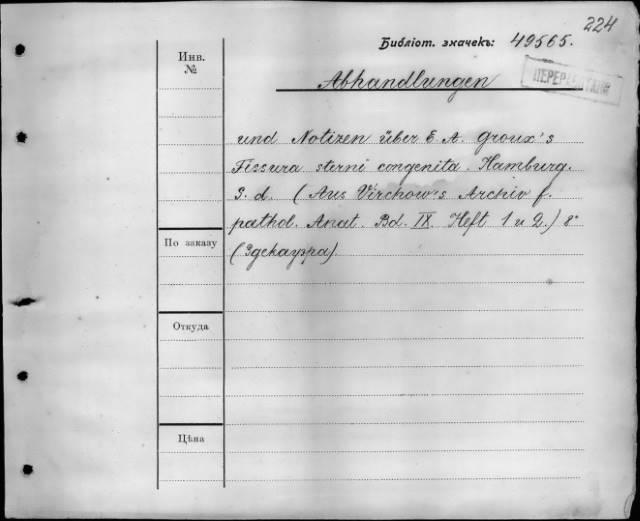 224
Библіот. значекъ: 49565.
Инв.
№
ПЕРЕРАБОТАНО
Abhandlungen
und Notizen über E. A. Groux's
Fissura sterni congenita. Hamburg.
S. d. (Aus Virchow's Archiv f.
pathol. Anat. Bd. IX. Heft 1 u 2.) 8°
(Эдекауэра).
По заказу
Откуда
Цѣна